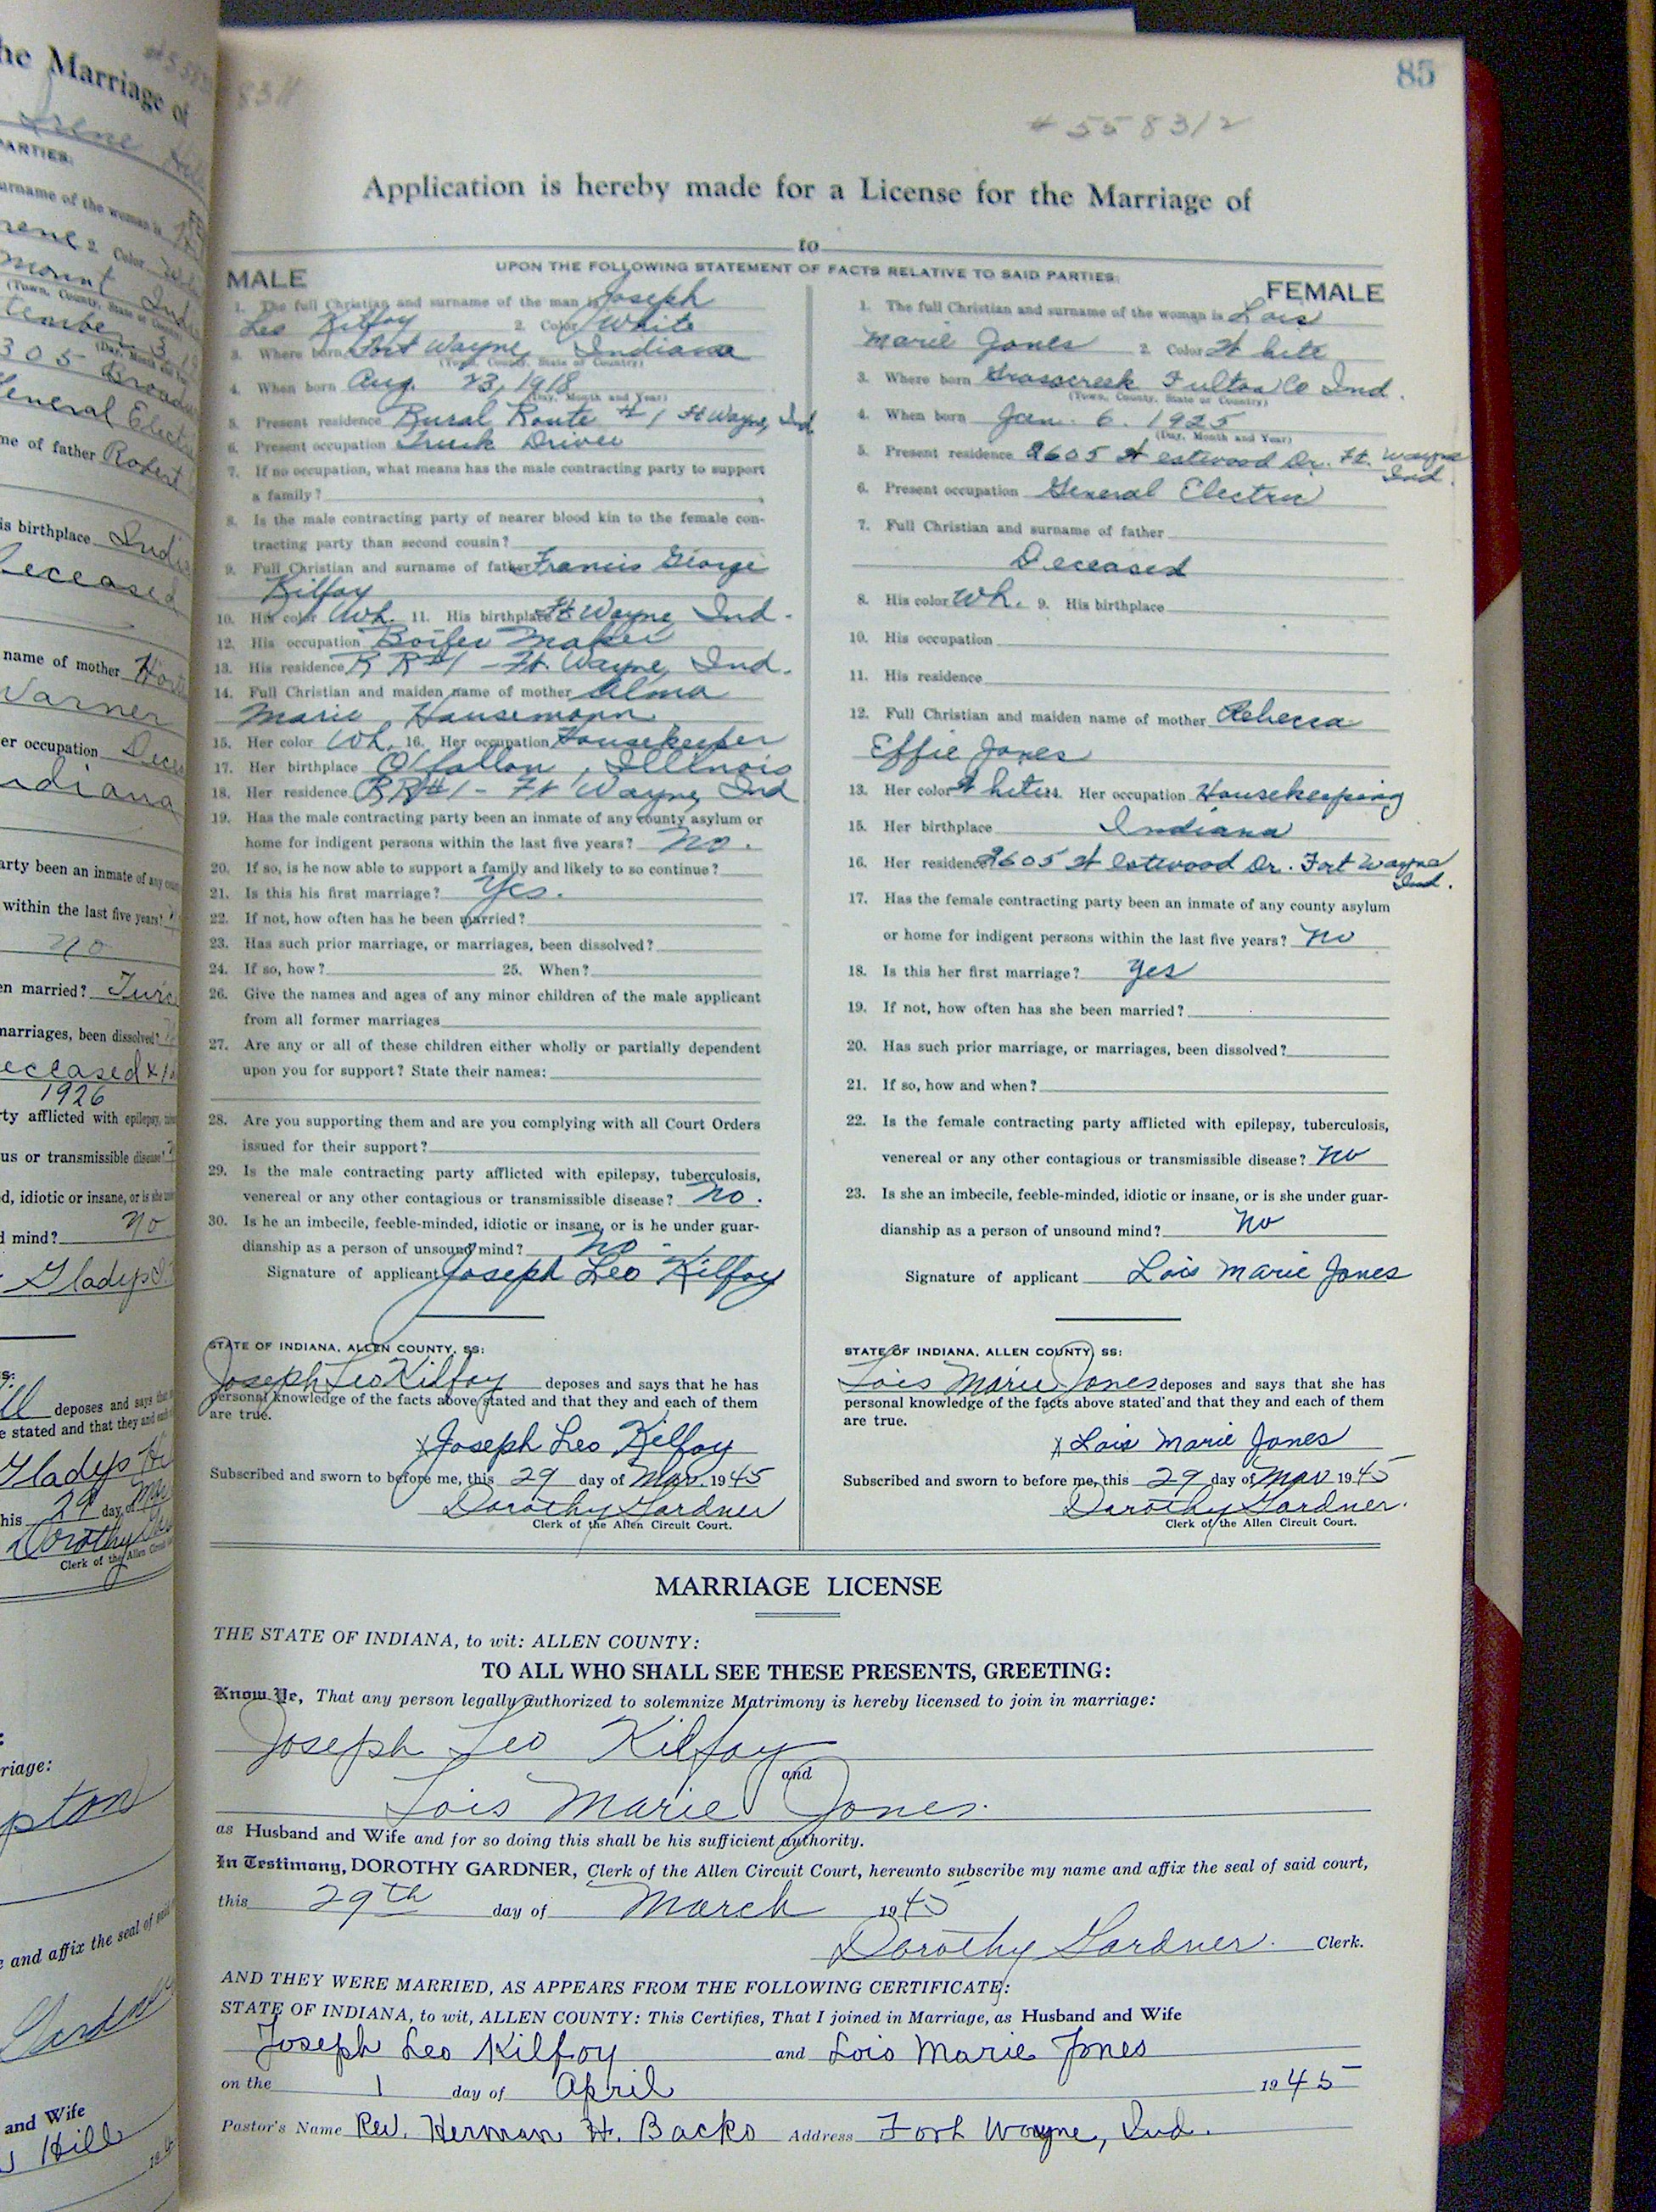 85
# 558312
Application is hereby made for a License for the Marriage of
to
UPON THE FOLLOWING STATEMENT OF FACTS RELATIVE TO SAID PARTIES:
MALE
1. The full Christian and surname of the man is Joseph
Leo Kilfoy 2. Color White
3. Where born Fort Wayne, Indiana
(Town, County, State or Country)
4. When born Aug. 23, 1918
(Day, Month and Year)
5. Present residence Rural Route # 1 Ft Wayne, Ind
6. Present occupation Truck Driver
7. If no occupation, what means has the male contracting party to support
a family?
8. Is the male contracting party of nearer blood kin to the female con-
tracting party than second cousin?
9. Full Christian and surname of father Francis George
Kilfoy
10. His color Wh. 11. His birthplace Ft Wayne, Ind.
12. His occupation Boiler Maker
13. His residence R R#1 - Ft. Wayne, Ind.
14. Full Christian and maiden name of mother Alma
Marie Hausemann
15. Her color Wh. 16. Her occupation Housekeeper
17. Her birthplace O'fallon, Illinois
18. Her residence RR#1 - Ft Wayne, Ind
19. Has the male contracting party been an inmate of any county asylum or
home for indigent persons within the last five years? No.
20. If so, is he now able to support a family and likely to so continue?
21. Is this his first marriage? Yes.
22. If not, how often has he been married?
23. Has such prior marriage, or marriages, been dissolved?
24. If so, how? 25. When?
26. Give the names and ages of any minor children of the male applicant
from all former marriages
27. Are any or all of these children either wholly or partially dependent
upon you for support? State their names:
28. Are you supporting them and are you complying with all Court Orders
issued for their support?
29. Is the male contracting party afflicted with epilepsy, tuberculosis,
venereal or any other contagious or transmissible disease? No.
30. Is he an imbecile, feeble-minded, idiotic or insane, or is he under guar-
dianship as a person of unsound mind? No.
Signature of applicant Joseph Leo Kilfoy
STATE OF INDIANA, ALLEN COUNTY, SS:
Joseph Leo Kilfoy deposes and says that he has
personal knowledge of the facts above stated and that they and each of them
are true.
x Joseph Leo Kilfoy
Subscribed and sworn to before me, this 29 day of Mar. 1945
Dorothy Gardner
Clerk of the Allen Circuit Court.
FEMALE
1. The full Christian and surname of the woman is Lois
Marie Jones 2. Color White
3. Where born Grasscreek Fulton Co Ind.
(Town, County, State or Country)
4. When born Jan. 6. 1925
(Day, Month and Year)
5. Present residence 2605 Westwood Dr. Ft. Wayne
Ind.
6. Present occupation General Electric
7. Full Christian and surname of father
Deceased
8. His color Wh. 9. His birthplace
10. His occupation
11. His residence
12. Full Christian and maiden name of mother Rebecca
Effie Jones
13. Her color White 14. Her occupation Housekeeping
15. Her birthplace Indiana
16. Her residence 2605 Westwood Dr. Fort Wayne
Ind.
17. Has the female contracting party been an inmate of any county asylum
or home for indigent persons within the last five years? No
18. Is this her first marriage? Yes
19. If not, how often has she been married?
20. Has such prior marriage, or marriages, been dissolved?
21. If so, how and when?
22. Is the female contracting party afflicted with epilepsy, tuberculosis,
venereal or any other contagious or transmissible disease? No
23. Is she an imbecile, feeble-minded, idiotic or insane, or is she under guar-
dianship as a person of unsound mind? No
Signature of applicant Lois Marie Jones
STATE OF INDIANA, ALLEN COUNTY, SS:
Lois Marie Jones deposes and says that she has
personal knowledge of the facts above stated and that they and each of them
are true.
x Lois Marie Jones
Subscribed and sworn to before me, this 29 day of Mar 1945
Dorothy Gardner.
Clerk of the Allen Circuit Court.
MARRIAGE LICENSE
THE STATE OF INDIANA, to wit: ALLEN COUNTY:
TO ALL WHO SHALL SEE THESE PRESENTS, GREETING:
Know Ye, That any person legally authorized to solemnize Matrimony is hereby licensed to join in marriage:
Joseph Leo Kilfoy
and
Lois Marie Jones.
as Husband and Wife and for so doing this shall be his sufficient authority.
In Testimony, DOROTHY GARDNER, Clerk of the Allen Circuit Court, hereunto subscribe my name and affix the seal of said court,
this 29th day of March 1945
Dorothy Gardner. Clerk.
AND THEY WERE MARRIED, AS APPEARS FROM THE FOLLOWING CERTIFICATE:
STATE OF INDIANA, to wit, ALLEN COUNTY: This Certifies, That I joined in Marriage, as Husband and Wife
Joseph Leo Kilfoy and Lois Marie Jones
on the 1 day of April 1945
Pastor's Name Rev. Herman H. Backs Address Fort Wayne, Ind.